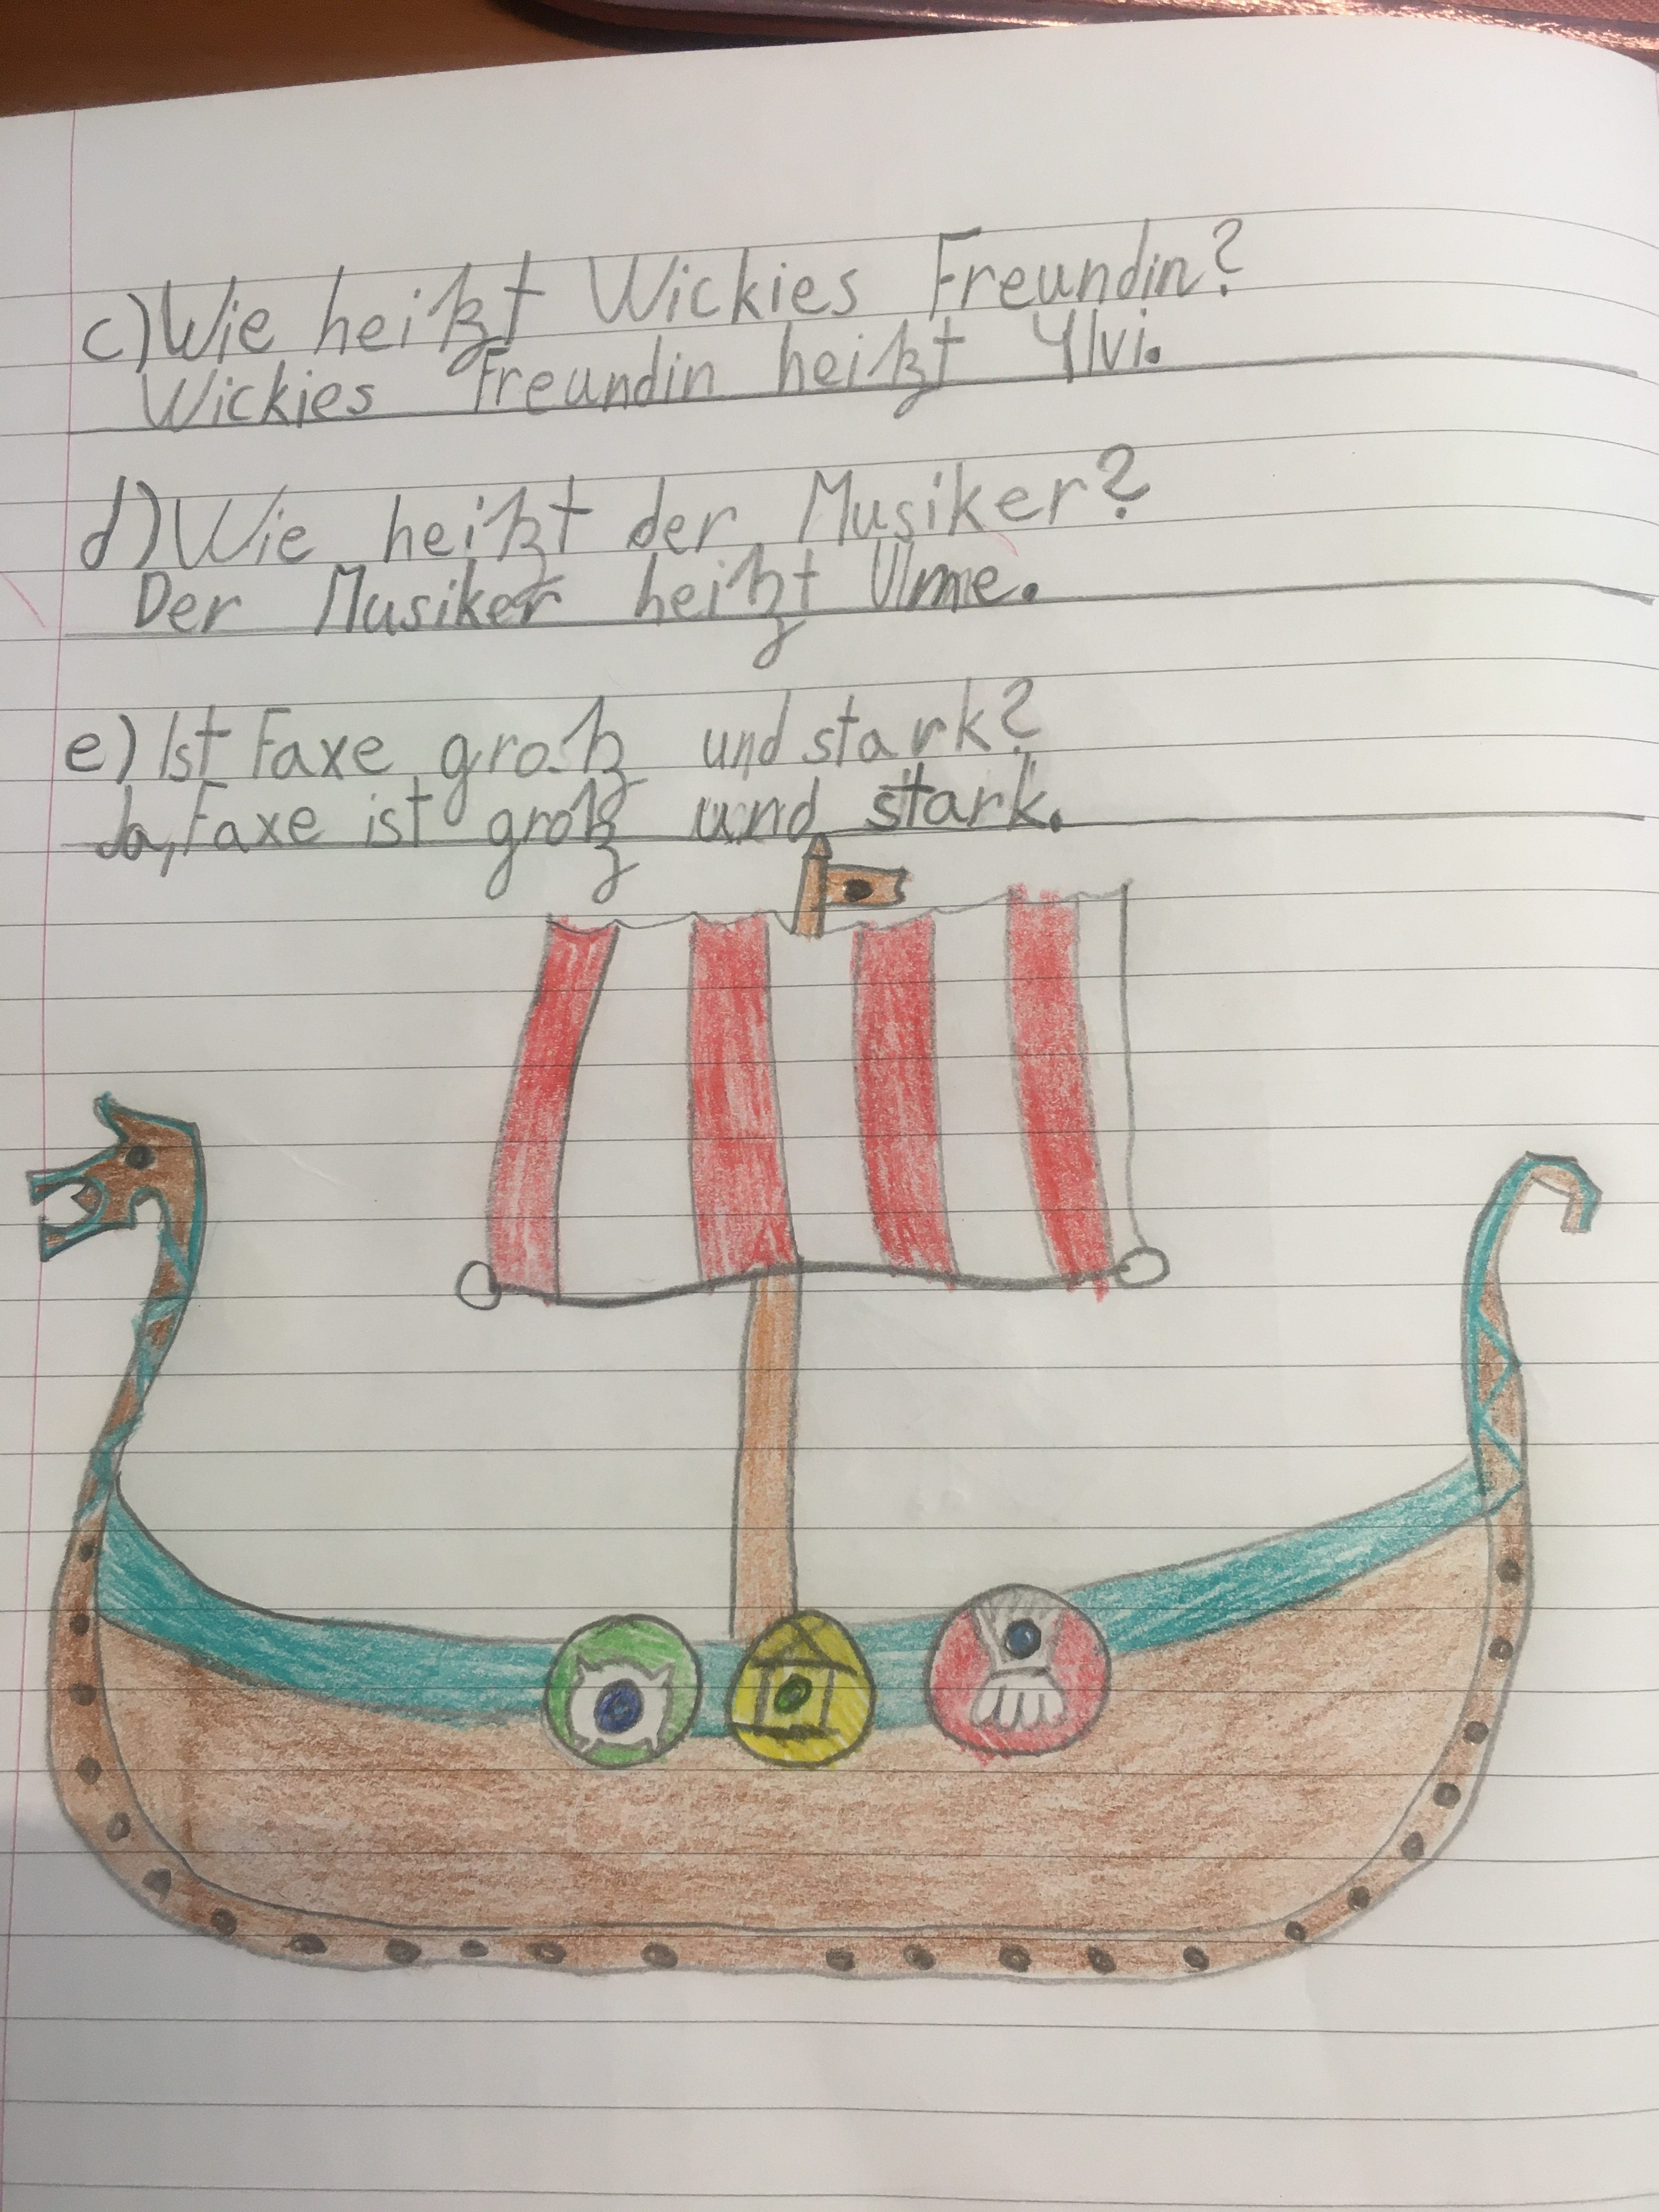 c) Wie heißt Wickies Freundin?
Wickies Freundin heißt Ylvi.
d) Wie heißt der Musiker?
Der Musiker heißt Ulme.
e) Ist Faxe groß und stark?
Ja, Faxe ist groß und stark.